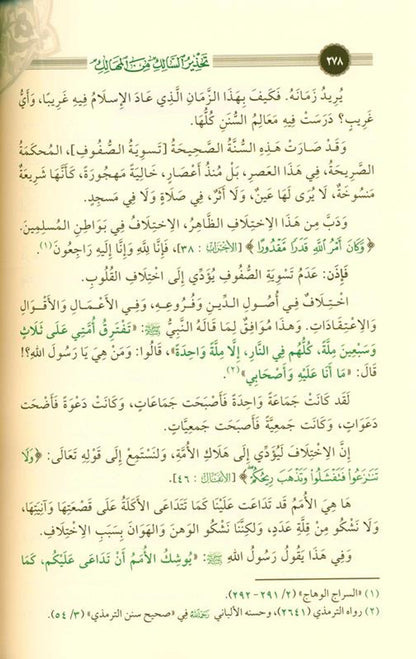 ٢٧٨
تَحْذِيرُ السَّالِكِ مِنَ المَهَالِكِ
يُرِيدُ زَمَانَهُ. فَكَيفَ بِهَذَا الزَّمَانِ الَّذِي عَادَ الإِسلَامُ فِيهِ غَرِيبًا، وَأَيُّ
غَرِيبٍ؟ دَرَسَتْ فِيهِ مَعَالِمُ السُّنَنِ كُلُّهَا.
وَقَدْ صَارَتْ هَذِهِ السُّنَّةُ الصَّحِيحَةُ [تَسوِيَةُ الصُّفُوفِ]، المُحكَمَةُ
الصَّرِيحَةُ، فِي هَذَا العَصرِ، بَلْ مُنذُ أَعصَارٍ، خَالِيَةً مَهجُورَةً، كَأَنَّهَا شَرِيعَةٌ
مَنسُوخَةٌ، لَا يُرَى لَهَا عَينٌ، وَلَا أَثَرٌ، فِي صَلَاةٍ وَلَا فِي مَسجِدٍ.
وَدَبَّ مِن هَذَا الِاختِلَافِ الظَّاهِرِ، الِاختِلَافُ فِي بَوَاطِنِ المُسلِمِينَ.
﴿وَكَانَ أَمْرُ اللَّهِ قَدَرًا مَّقْدُورًا﴾ [الأحزاب : ٣٨]، فَإِنَّا لِلَّهِ وَإِنَّا إِلَيهِ رَاجِعُونَ(١).
فَإِذَن: عَدَمُ تَسْوِيَةِ الصُّفُوفِ يُؤَدِّي إِلَى اختِلَافِ القُلُوبِ.
اختِلَافٌ فِي أُصُولِ الدِّينِ وَفُرُوعِهِ، وَفِي الأَعْمَالِ وَالأَقْوَالِ
وَالِاعتِقَادَاتِ. وَهَذَا مُوَافِقٌ لِمَا قَالَهُ النَّبِيُّ ﷺ: «تَفتَرِقُ أُمَّتِي عَلَى ثَلَاثٍ
وَسَبعِينَ مِلَّةً، كُلُّهُم فِي النَّارِ، إِلَّا مِلَّةً وَاحِدَةً»، قَالُوا: وَمَنْ هِيَ يَا رَسُولَ اللهِ؟!
قَالَ: «مَا أَنَا عَلَيْهِ وَأَصْحَابِي»(٢).
لَقَد كَانَتْ جَمَاعَةً وَاحِدَةً فَأَصبَحَت جَمَاعَاتٍ، وَكَانَتْ دَعْوَةً فَأَضْحَت
دَعَوَاتٍ، وَكَانَت جَمعِيَّةً فَأَصبَحَت جَمعِيَّاتٍ.
إِنَّ الِاختِلَافَ لَيُؤَدِّي إِلَى هَلَاكِ الأُمَّةِ، وَلنَستَمِعْ إِلَى قَوْلِهِ تَعَالَى: ﴿وَلَا
تَنَازَعُوا فَتَفْشَلُوا وَتَذْهَبَ رِيحُكُمْ﴾ [الأنفال : ٤٦].
هَا هِيَ الأُمَمُ قَد تَدَاعَت عَلَيْنَا كَمَا تَتَدَاعَى الأَكَلَةُ عَلَى قَصْعَتِهَا وَآنِيَتِهَا،
وَلَا نَشكُو مِن قِلَّةِ عَدَدٍ، وَلَكِنَّنَا نَشكُو الوَهنَ وَالهَوَانَ بِسَبَبِ الِاختِلَافِ.
وَفِي هَذَا يَقُولُ رَسُولُ اللهِ ﷺ: «يُوشِكُ الأُمَمُ أَنْ تَدَاعَى عَلَيْكُم، كَمَا
(١) «السراج الوهاج» (٢/ ٢٩١ - ٢٩٢).
(٢) رواه الترمذي (٢٦٤١)، وحسنه الألباني رَحِمَهُ اللَّهُ في «صحيح سنن الترمذي» (٣/ ٥٤).